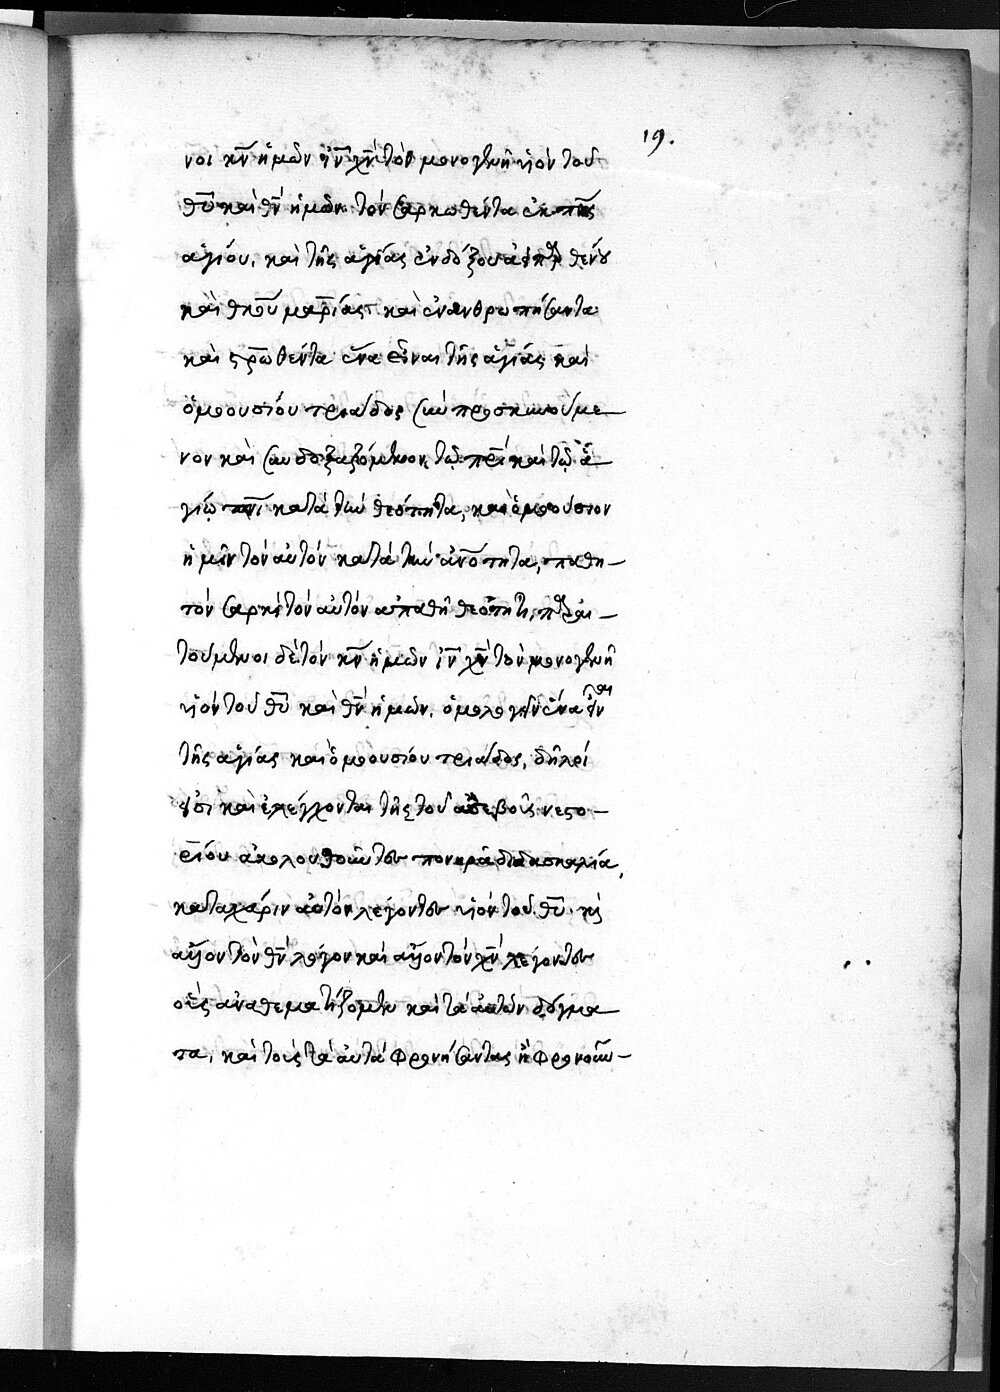 19.
νοι κν ἡμῶν ἰν χν τὸν μονογενῆ υἱὸν τοῦ
θυ καὶ θν ἡμῶν. τὸν σαρκωθέντα ἐκ πνς
ἁγίου, καὶ τῆς ἁγίας ἐνδόξου ἀειπαρθένου
καὶ θκου μαρίας καὶ ἐνανθρωπήσαντα
καὶ στρωθέντα ἕνα εἶναι τῆς ἁγίας καὶ
ὁμοουσίου τριάδος συν προσκυνούμε
νον καὶ συνδοξαζόμενον, τῷ πρι καὶ τῷ ἁ
γίῳ πνι κατὰ τὴν θεότητα, καὶ ὁμοούσιον
ἡμῖν τὸν αὐτὸν κατὰ τὴν ἀνότητα, παθη
τὸν σαρκὶ τὸν αὐτὸν ἀπαθῆ θεότητι, παραι
τούμενοι δὲ τὸν κν ἡμῶν ἰν χν τὸν μονογενῆ
υἱὸν τοῦ θυ καὶ θν ἡμῶν. ὁμολογεῖν ἕνα εἶναι
τῆς ἁγίας καὶ ὁμοουσίου τριάδος, δῆλοί
εἰσι καὶ ἐλέγχονται τῆς τοῦ ἀσεβοῦς νεστο
ρίου ἀκολουθοῦντες πονηρᾶ διδασκαλία,
κατὰ χάριν αὐτὸν λέγοντες υἱὸν τοῦ θυ. κὶ
ἄλλον τὸν θν λόγον καὶ ἄλλον τὸν χν λέγοντες
οὓς ἀναθεματίζομεν καὶ τὰ αὐτῶν δόγμα
τα, καὶ τοὺς τὰ αὐτὰ φρονήσαντας ἢ φρονοῦν